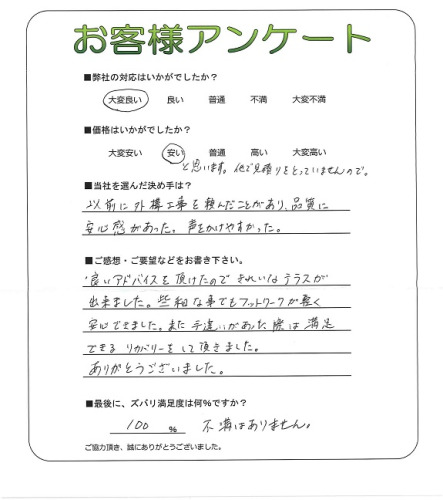 お客様アンケート
■弊社の対応はいかがでしたか?
大変良い 良い 普通 不満 大変不満
■価格はいかがでしたか?
大変安い 安い 普通 高い 大変高い
と思います。他で見積りをとっていませんので。
■当社を選んだ決め手は?
以前に外構工事を頼んだことがあり、品質に
安心感があった。声をかけやすかった。
■ご感想・ご要望などをお書き下さい。
良いアドバイスを頂けたのできれいなテラスが
出来ました。些細な事でもフットワークが軽く
安心できました。また手違いがあった際は満足
できるリカバリーをして頂きました。
ありがとうございました。
■最後に、ズバリ満足度は何%ですか?
100 % 不満はありません。
ご協力頂き、誠にありがとうございました。